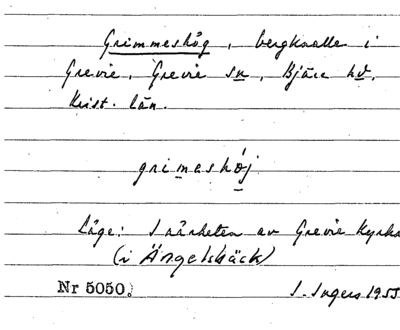 Grimmeshög, bergknalle i
Grevie, Grevie sn, Bjäre hd,
Krist. län.
grimashöj
Läge: I närheten av Grevie Kyrka
(i Ängelsbäck)
Nr 5050.
I. Ingers 1955